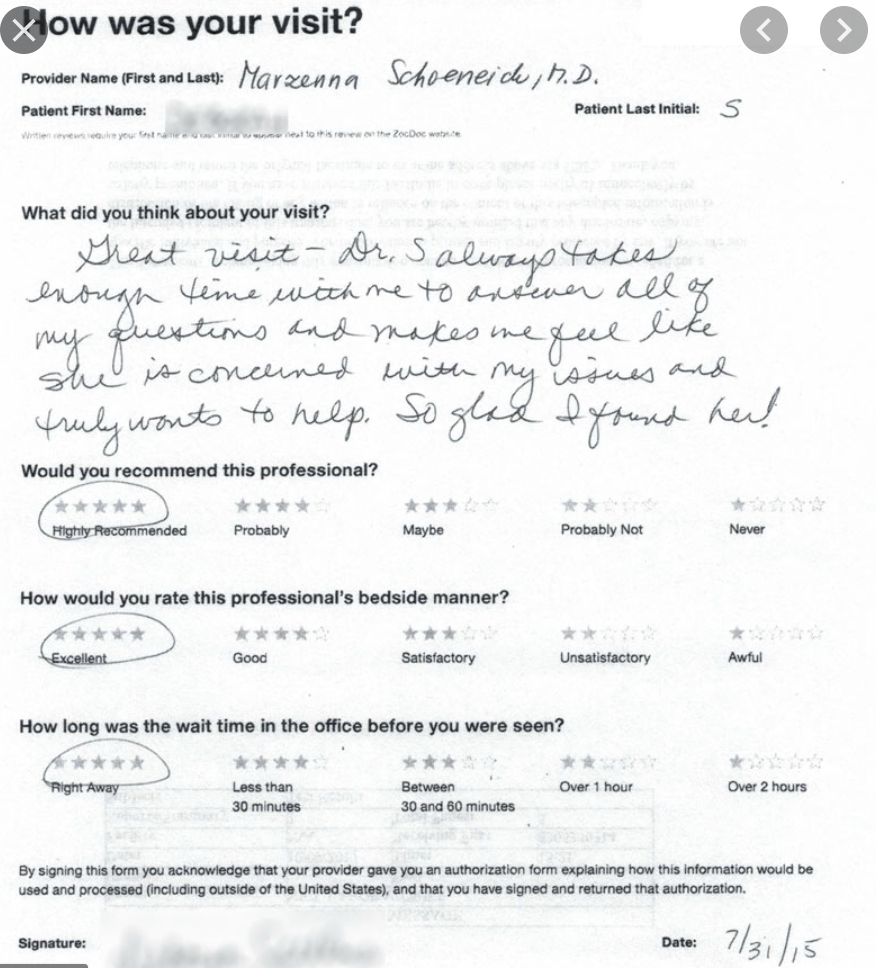 How was your visit?
Provider Name (First and Last): Marzenna Schoeneich, M.D.
Patient First Name: Patient Last Initial: S
Written reviews require your first name and last initial to appear next to this review on the ZocDoc website.
What did you think about your visit?
Great visit - Dr. S always takes
enough time with me to answer all of
my questions and makes me feel like
she is concerned with my issues and
truly wants to help. So glad I found her!
Would you recommend this professional?
Highly Recommended Probably Maybe Probably Not Never
How would you rate this professional's bedside manner?
Excellent Good Satisfactory Unsatisfactory Awful
How long was the wait time in the office before you were seen?
Right Away Less than Between Over 1 hour Over 2 hours
30 minutes 30 and 60 minutes
By signing this form you acknowledge that your provider gave you an authorization form explaining how this information would be
used and processed (including outside of the United States), and that you have signed and returned that authorization.
Signature: Date: 7/31/15